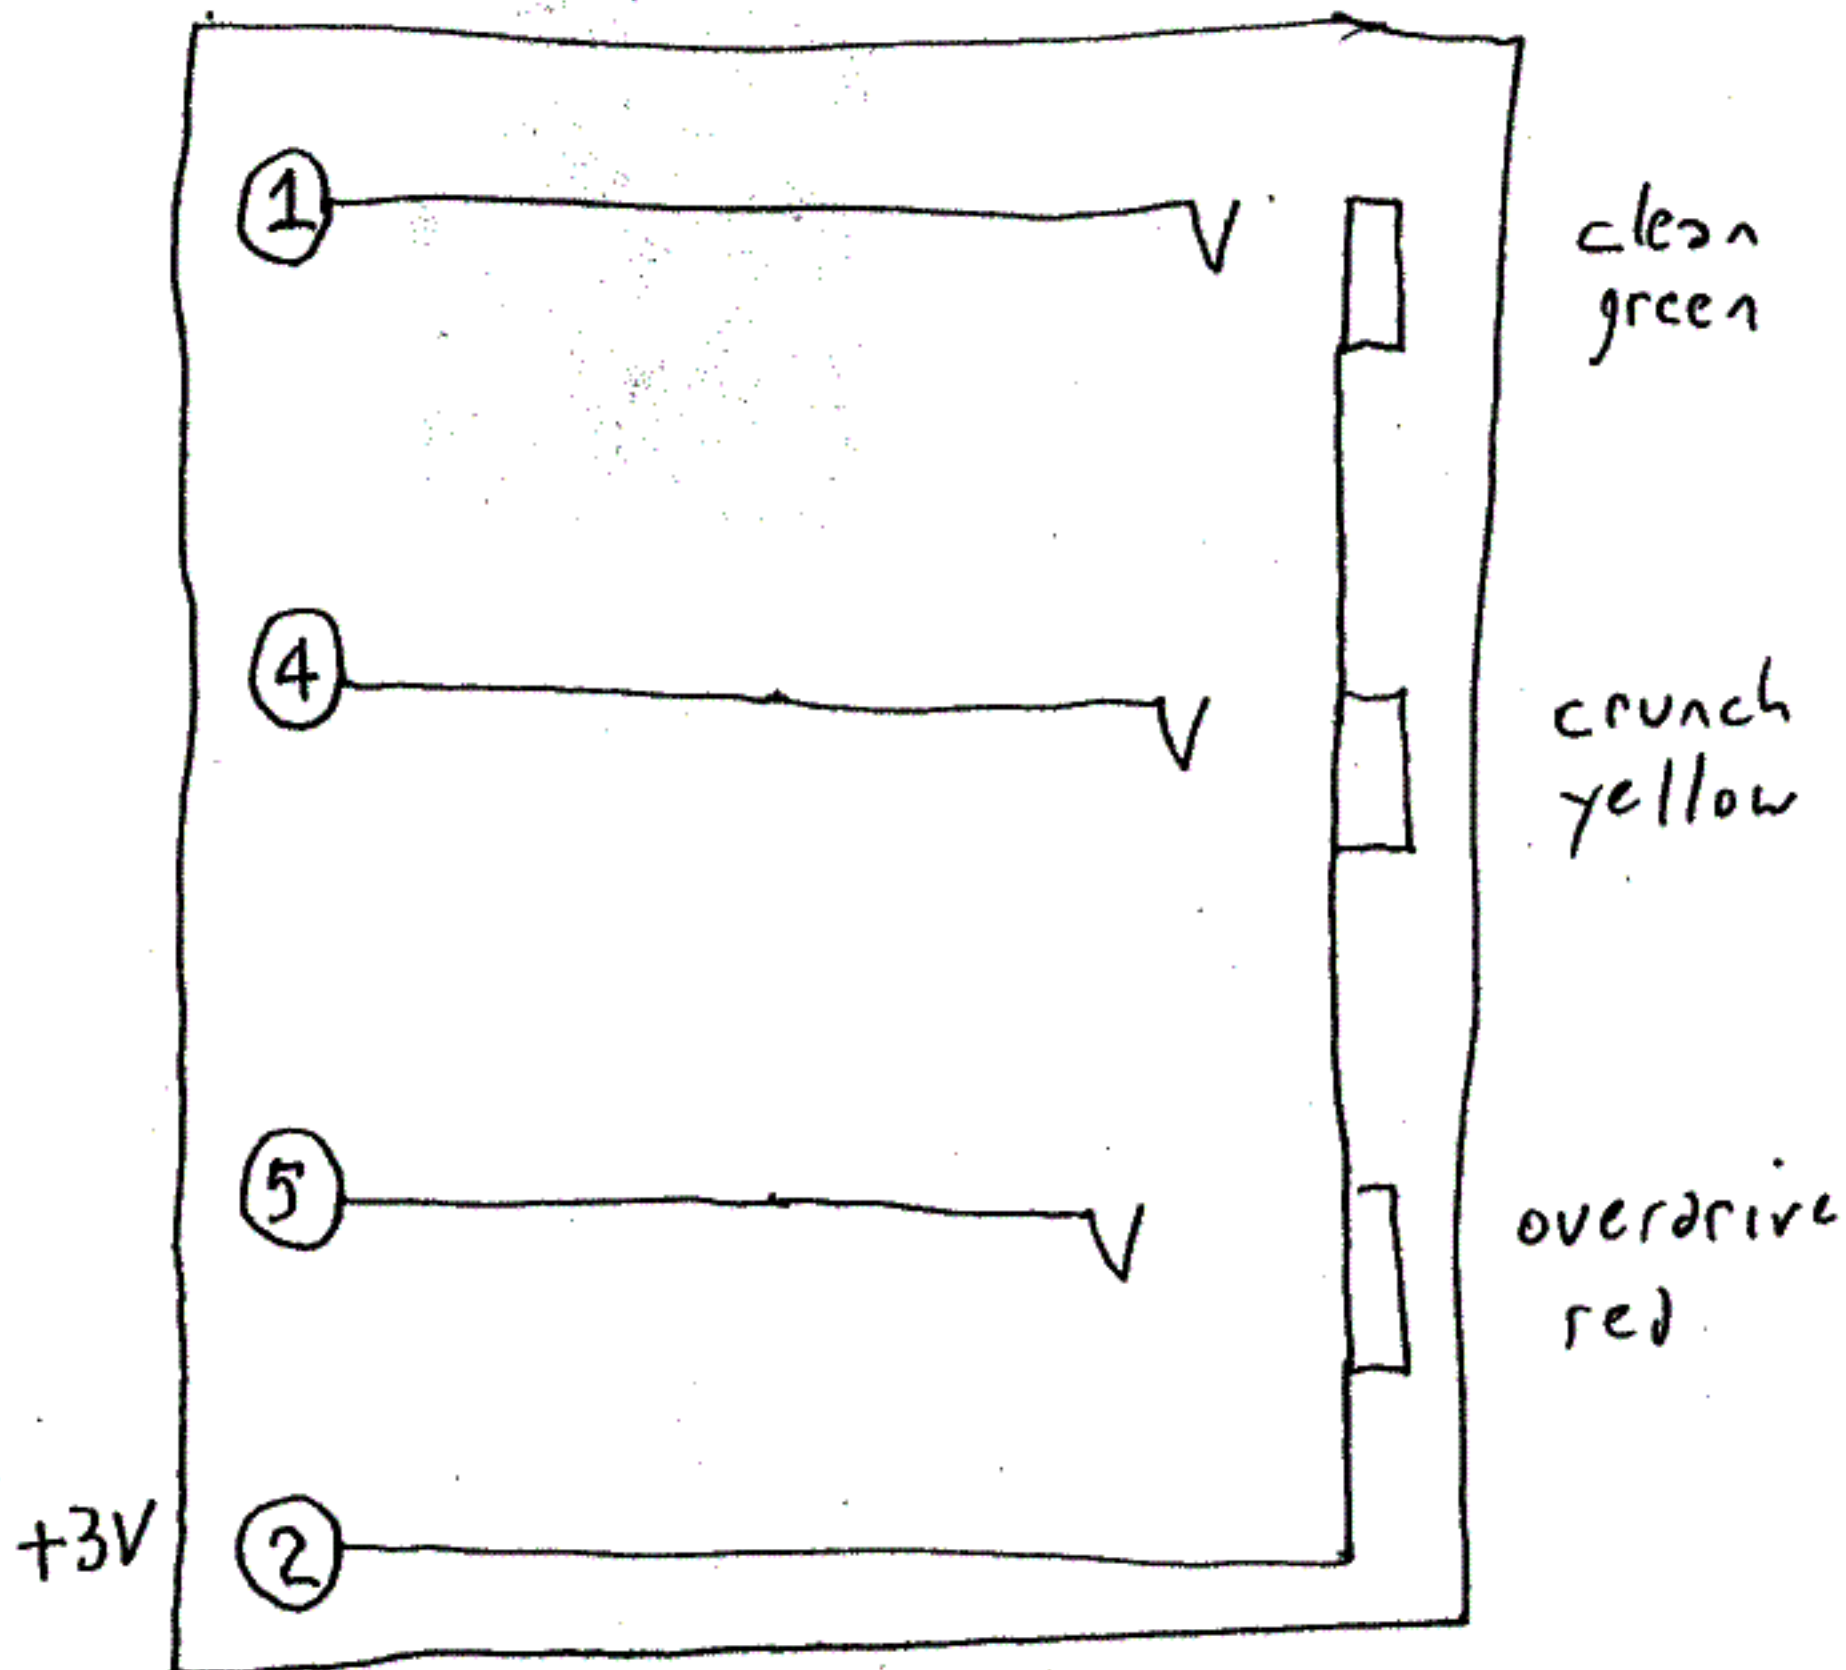 1
clean
green
4
crunch
yellow
5
overdrive
red
+3V 2